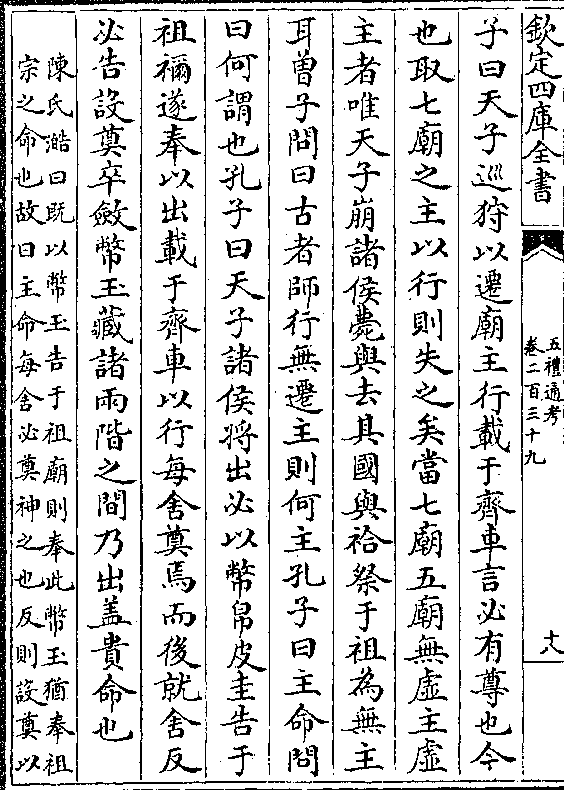 欽定四庫全書
五禮通考
卷二百三十九
十八
子曰天子巡狩以遷廟主行載于齊車言必有尊也今
也取七廟之主以行則失之矣當七廟五廟無虛主虛
主者唯天子崩諸侯薨與去其國與祫祭于祖為無主
耳曾子問曰古者師行無遷主則何主孔子曰主命問
曰何謂也孔子曰天子諸侯將出必以幣帛皮圭告于
祖禰遂奉以出載于齊車以行每舍奠焉而後就舍反
必告設奠卒斂幣玉藏諸兩階之間乃出盖貴命也
陳氏澔曰既以幣玉告于祖廟則奉此幣玉猶奉祖
宗之命也故曰主命每舍必奠神之也反則設奠以